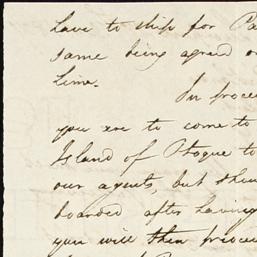 have to ship for Pa
same being agreed o
Lima.
In procee
you are to come to
Island of Otoque to
our agents, but then
boarded after having
you will then procee